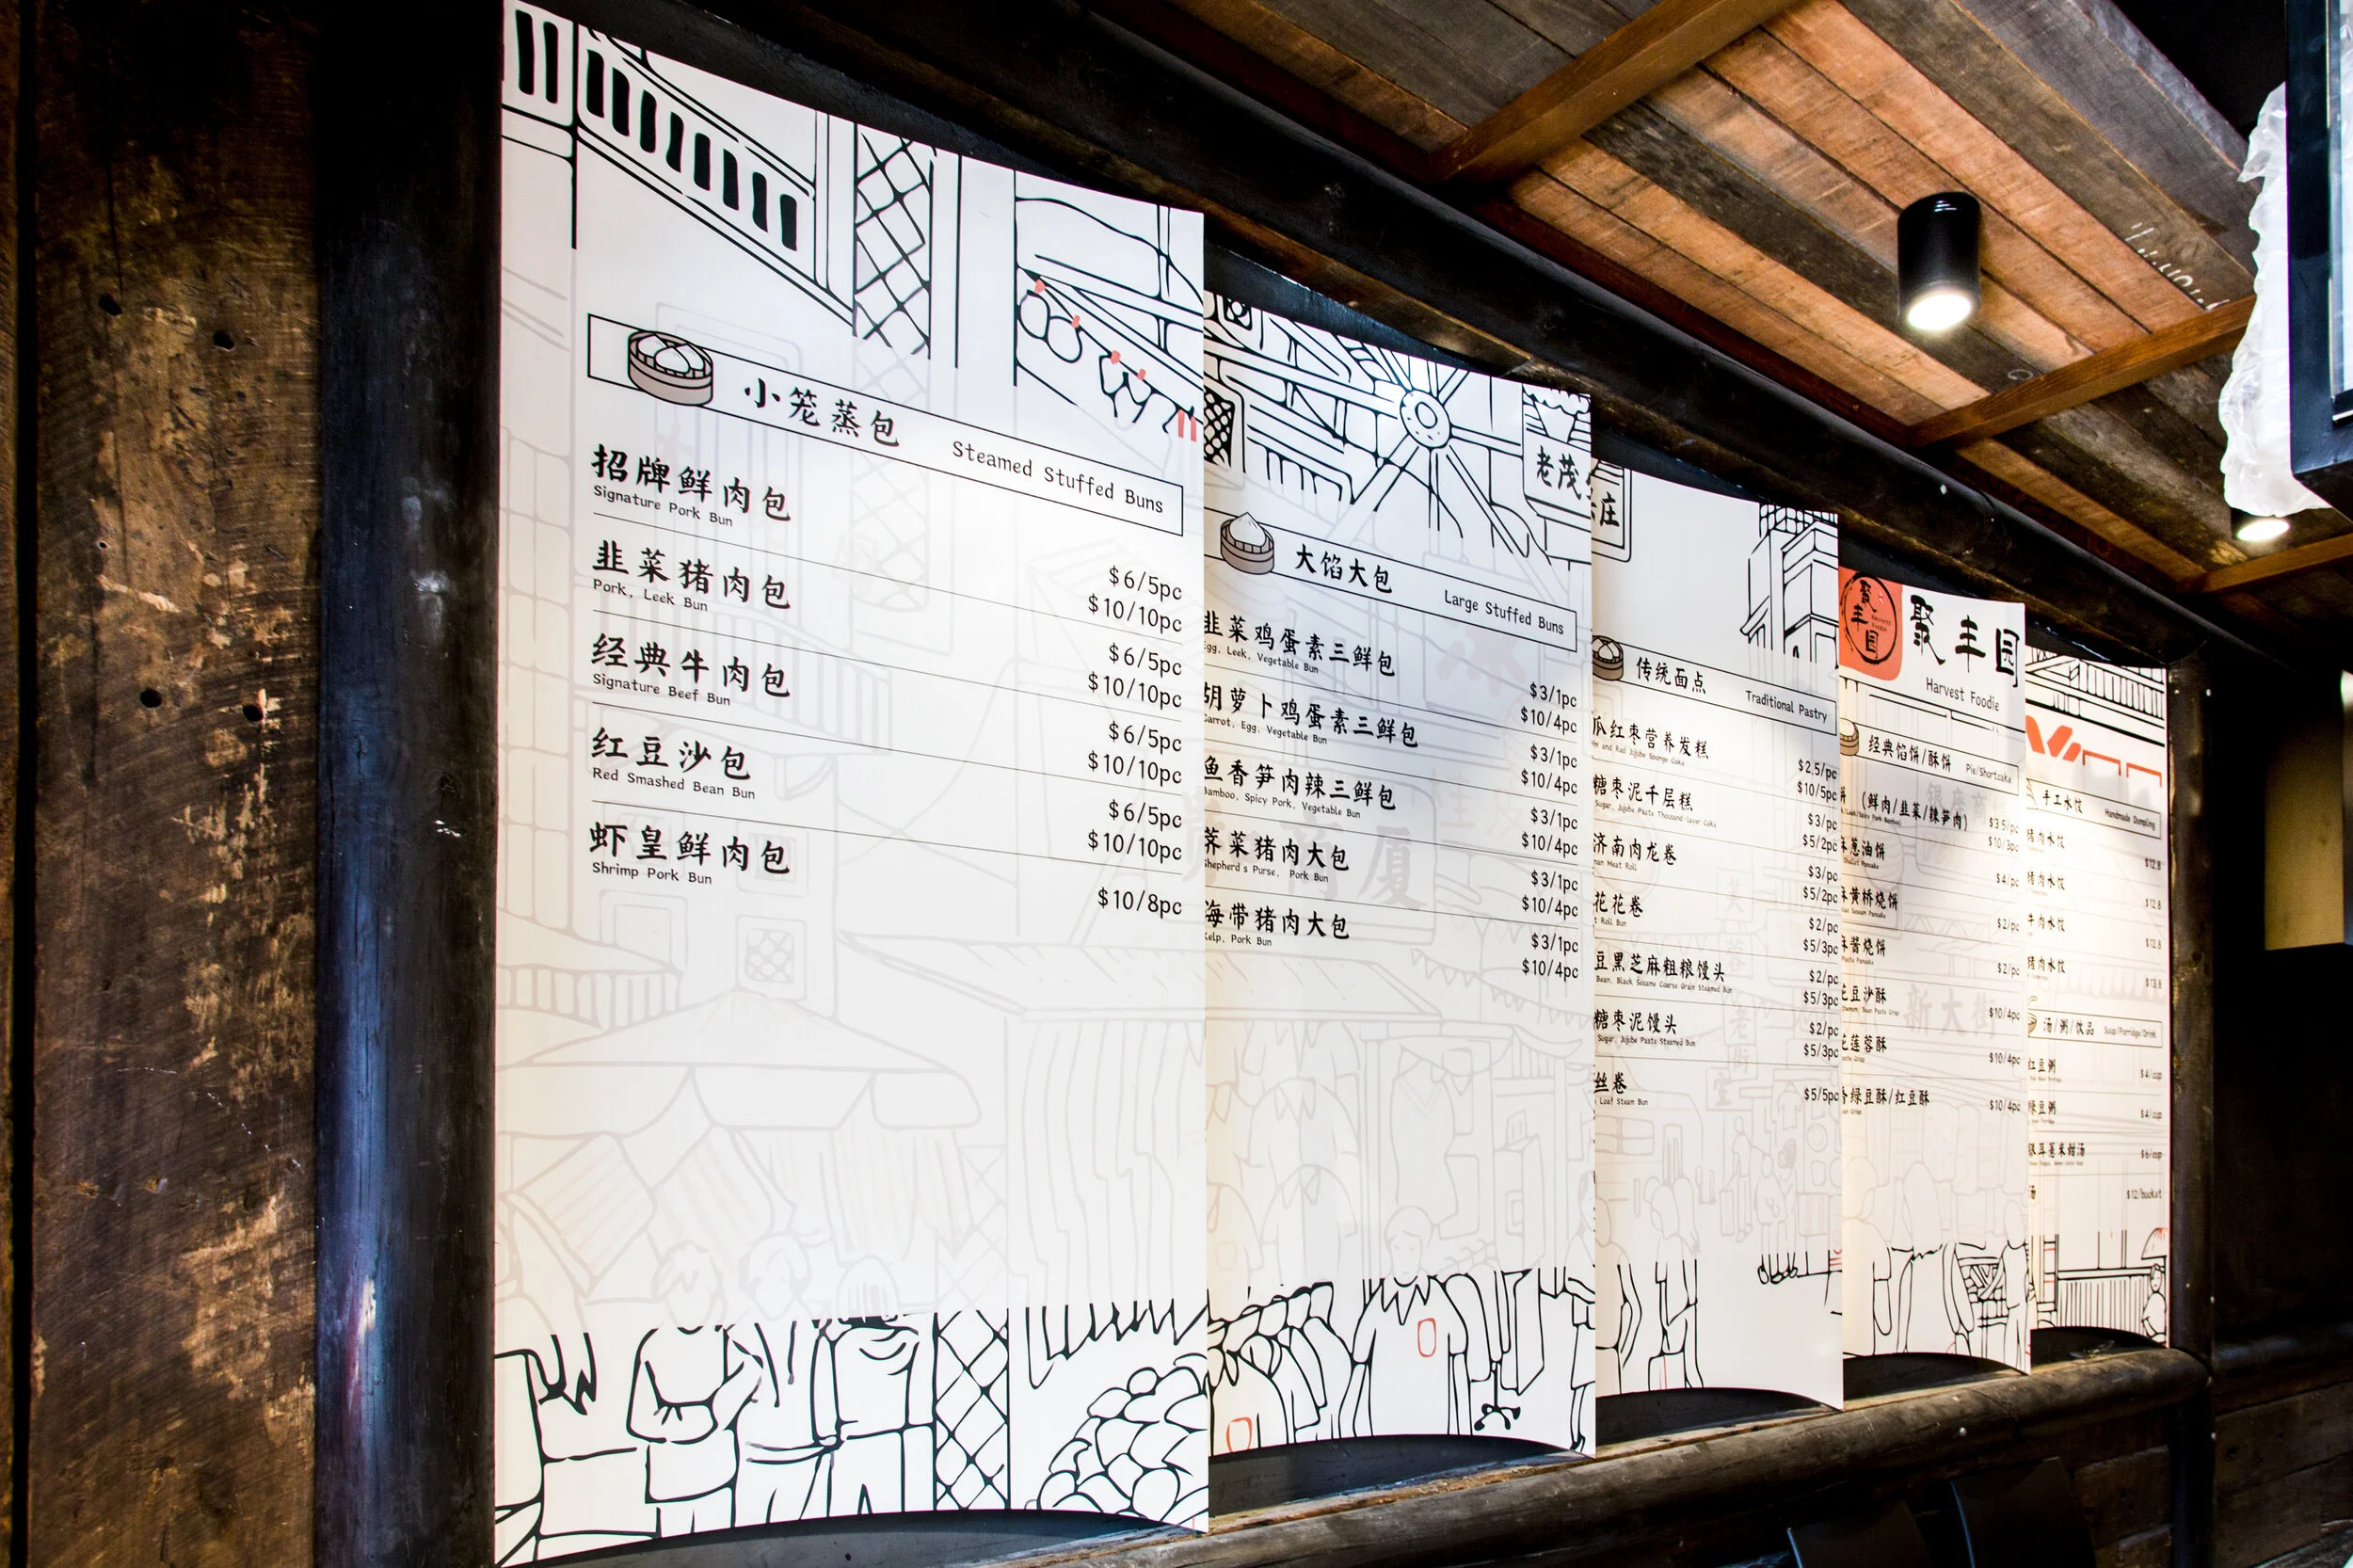 小笼蒸包 Steamed Stuffed Buns
招牌鲜肉包
Signature Pork Bun
$6/5pc
$10/10pc
韭菜猪肉包
Pork, Leek Bun
$6/5pc
$10/10pc
经典牛肉包
Signature Beef Bun
$6/5pc
$10/10pc
红豆沙包
Red Smashed Bean Bun
$6/5pc
$10/10pc
虾皇鲜肉包
Shrimp Pork Bun
$10/8pc
老茂
庄
大馅大包 Large Stuffed Buns
韭菜鸡蛋素三鲜包
Egg, Leek, Vegetable Bun
$3/1pc
$10/4pc
胡萝卜鸡蛋素三鲜包
Carrot, Egg, Vegetable Bun
$3/1pc
$10/4pc
鱼香笋肉辣三鲜包
Bamboo, Spicy Pork, Vegetable Bun
$3/1pc
$10/4pc
荠菜猪肉大包
Shepherd's Purse, Pork Bun
$3/1pc
$10/4pc
海带猪肉大包
Kelp, Pork Bun
$3/1pc
$10/4pc
传统面点 Traditional Pastry
瓜红枣营养发糕
and Red Jujube Sponge Cake
$2.5/pc
$10/5pc
糖枣泥千层糕
Sugar, Jujube Paste Thousand-layer Cake
$3/pc
$5/2pc
济南肉龙卷
Meat Roll
$3/pc
$5/2pc
花花卷
Roll Bun
$2/pc
$5/3pc
豆黑芝麻粗粮馒头
Bean, Black Sesame Coarse Grain Steamed Bun
$2/pc
$5/3pc
糖枣泥馒头
Sugar, Jujube Paste Steamed Bun
$2/pc
$5/3pc
丝卷
Loaf Steam Bun
$5/5pc
聚丰园
Harvest Foodie
经典馅饼/酥饼 Pie/Shortcake
(鲜肉/韭菜/辣笋肉)
$3.5/pc
$10/3pc
葱油饼
$4/pc
黄桥烧饼
$2/pc
酱烧饼
$2/pc
豆沙酥
$10/4pc
莲蓉酥
$10/4pc
绿豆酥/红豆酥
$10/4pc
新大街
手工水饺 Handmade Dumpling
猪肉水饺
$12.8
猪肉水饺
$12.8
牛肉水饺
$12.8
猪肉水饺
$13.8
汤/粥/饮品 Soup/Porridge/Drink
红豆粥
$4/cup
绿豆粥
$4/cup
银耳薏米甜汤
$6/cup
汤
$12/bucket